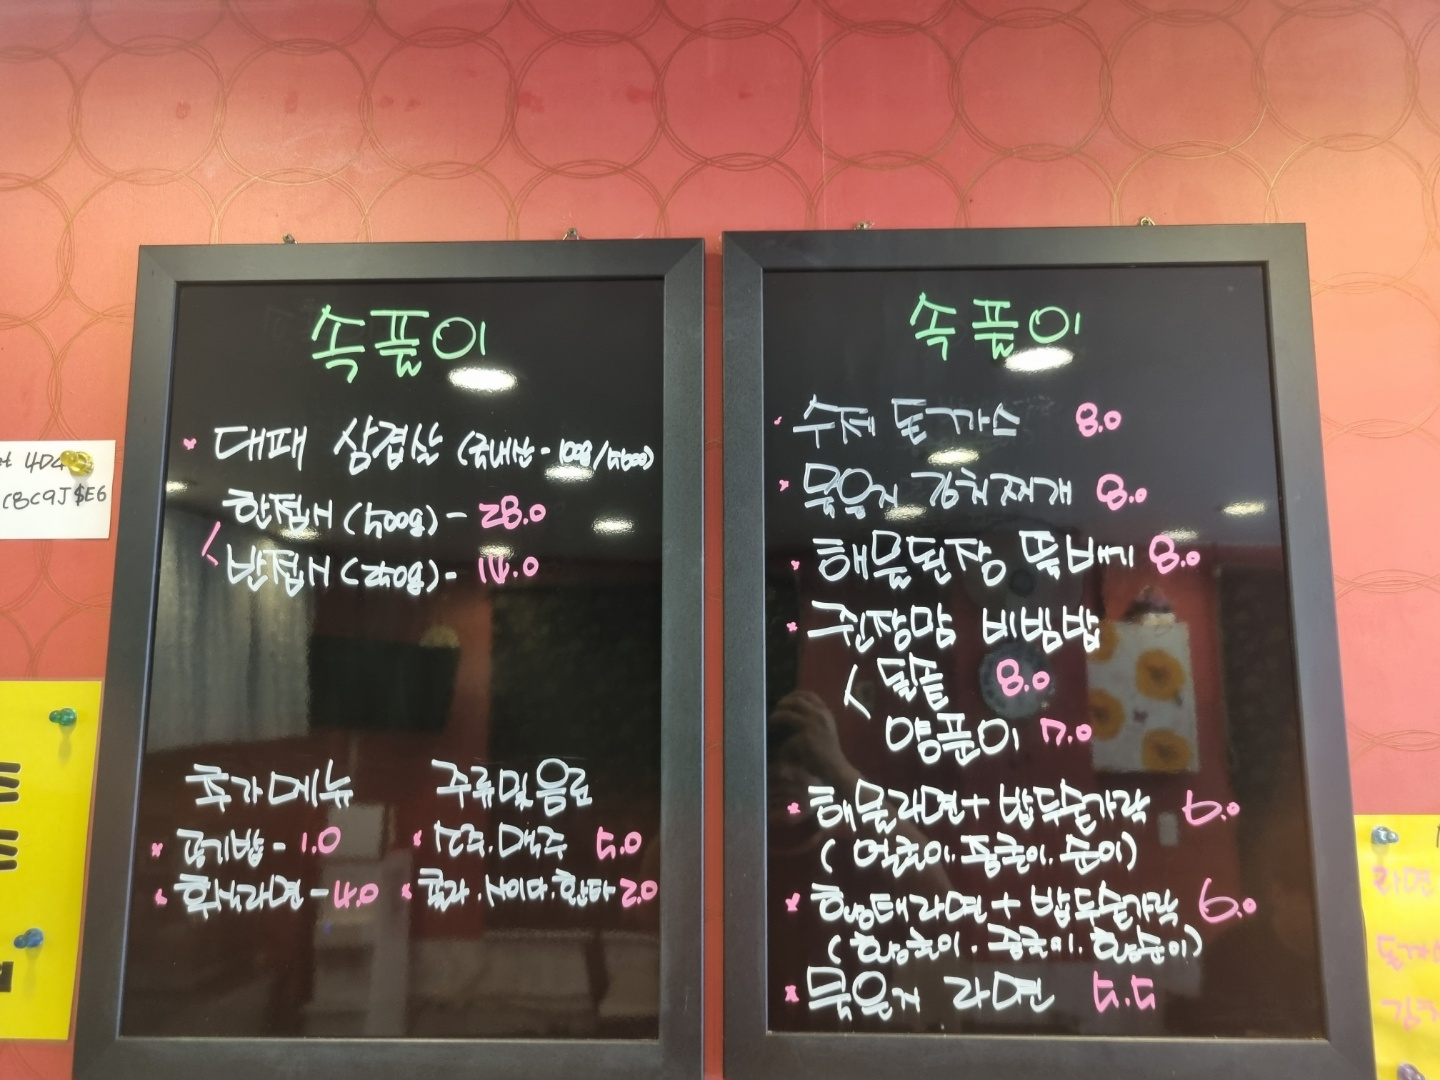 속풀이
* 대패 삼겹살 (국내산 - 100g/5,600)
한접시 (500g) - 28.0
반접시 (250g) - 14.0
추가메뉴
* 공기밥 - 1.0
* 후식라면 - 4.0
주류 및 음료
* 소주. 맥주 5.0
* 콜라. 사이다. 환타 2.0
속풀이
수제 돈까스 8.0
* 묵은지 김치찌개 8.0
* 해물된장 뚝배기 8.0
* 쥔장맘 비빔밥
돌솥 8.0
양푼이 7.0
* 해물라면 + 밥두숟가락 6.0
( 얼큰이. 중큰이. 순이)
* 황태라면 + 밥두숟가락 6.0
* 묵은지 라면 5.5
C8C9J$E6
라면